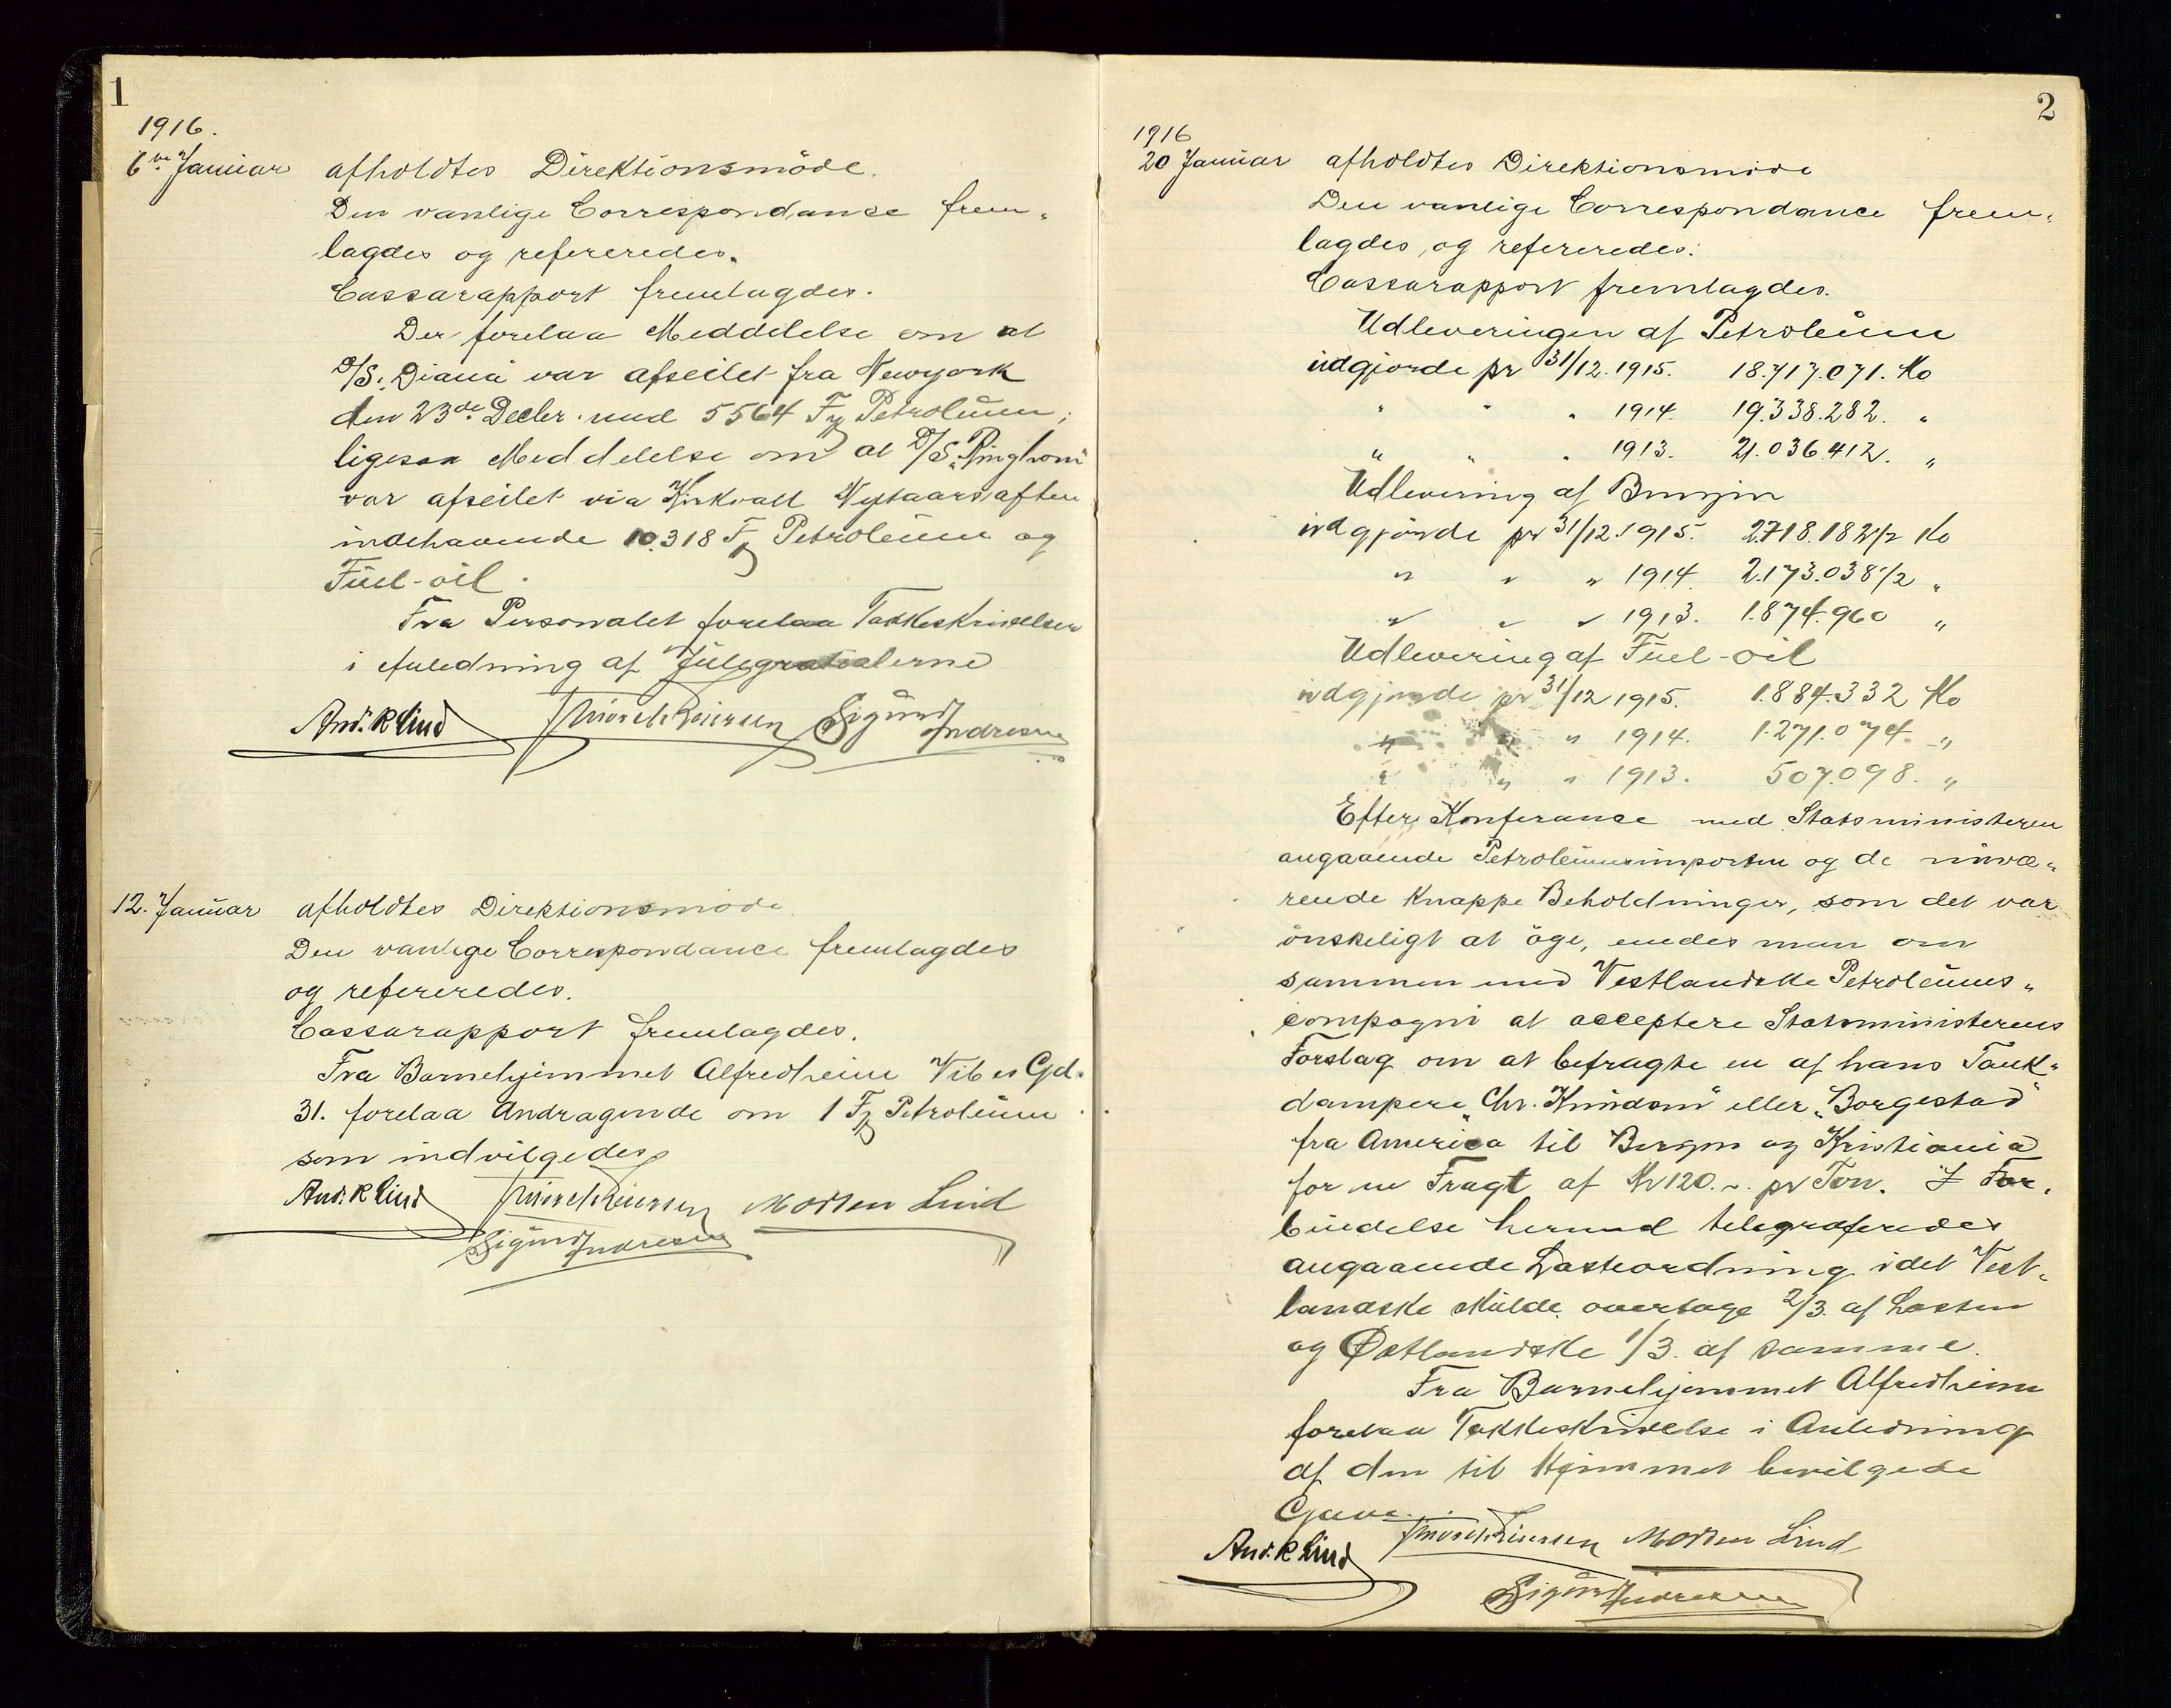 1
1916.
6te Januar afholdtes Direktionsmöde.
Den vanlige Correspondance frem-
lagdes og refereredes.
Cassarapport fremlagdes.
Der forelaa Meddelelse om at
D/S. Diana var afseilet fra Newyork
den 23de Decbr. med 5564 Fz Petroleum;
ligesaa Meddelelse om at D/S. "Ringhorn"
var afseilet via Kirkvall Nytaarsaften
indehavende 10.318 Fz Petroleum og
Fuel-oil.
Fra Personalet forelaa Takkeskrivelser
i Anledning af Julegratialerne
And. K Lind Sigurd Andresen
12. Januar afholdtes Direktionsmöde.
Den vanlige Correspondance fremlagdes
og refereredes.
Cassarapport fremlagdes.
Fra Barnehjemmet Alfredheim Vibes Gd.
31. forelaa Andragende om 1 Fz Petroleum
som indvilgedes
And. K Lind Morten Lind
Sigurd Andresen
2
1916
20 Januar afholdtes Direktionsmöde
Den vanlige Correspondance frem-
lagdes og refereredes.
Cassarapport fremlagdes.
Udleveringen af Petroleum
udgjorde pr 31/12. 1915. 18.717.071. Ko
" " " 1914. 19.338.282. "
" " " 1913. 21.036.412. "
Udlevering af Benzin
udgjorde pr 31/12. 1915. 2.718.182 1/2 Ko
" " " 1914. 2.173.038 1/2 "
" " " 1913. 1.874.960 "
Udlevering af Fuel-oil
udgjorde pr 31/12 1915. 1.884.332 Ko
" " " 1914. 1.271.074. "
" " " 1913. 507.098. "
Efter Konferance med Statsministeren
angaaende Petroleumsimporten og de nuvæ-
rende knappe Beholdninger, som det var
önskeligt at öge, enedes man om
sammen med Vestlandske Petroleums-
compagni at acceptere Statsministerens
Forslag om at befragte en af hans Tank-
dampere "Chr. Knudsen" eller "Borgestad"
fra America til Bergen og Kristiania
for en Fragt af Kr 120.- pr Ton. I For-
bindelse hermed telegraferedes
angaaende Lasteordning idet Vest-
landske skulde overtage 2/3. af Lasten
og Østlandske 1/3. af samme.
Fra Barnehjemmet Alfredheim
forelaa Takkeskrivelse i Anledning
af den til Hjemmet bevilgede
Gave.
And. K Lind Morten Lind
Sigurd Andresen